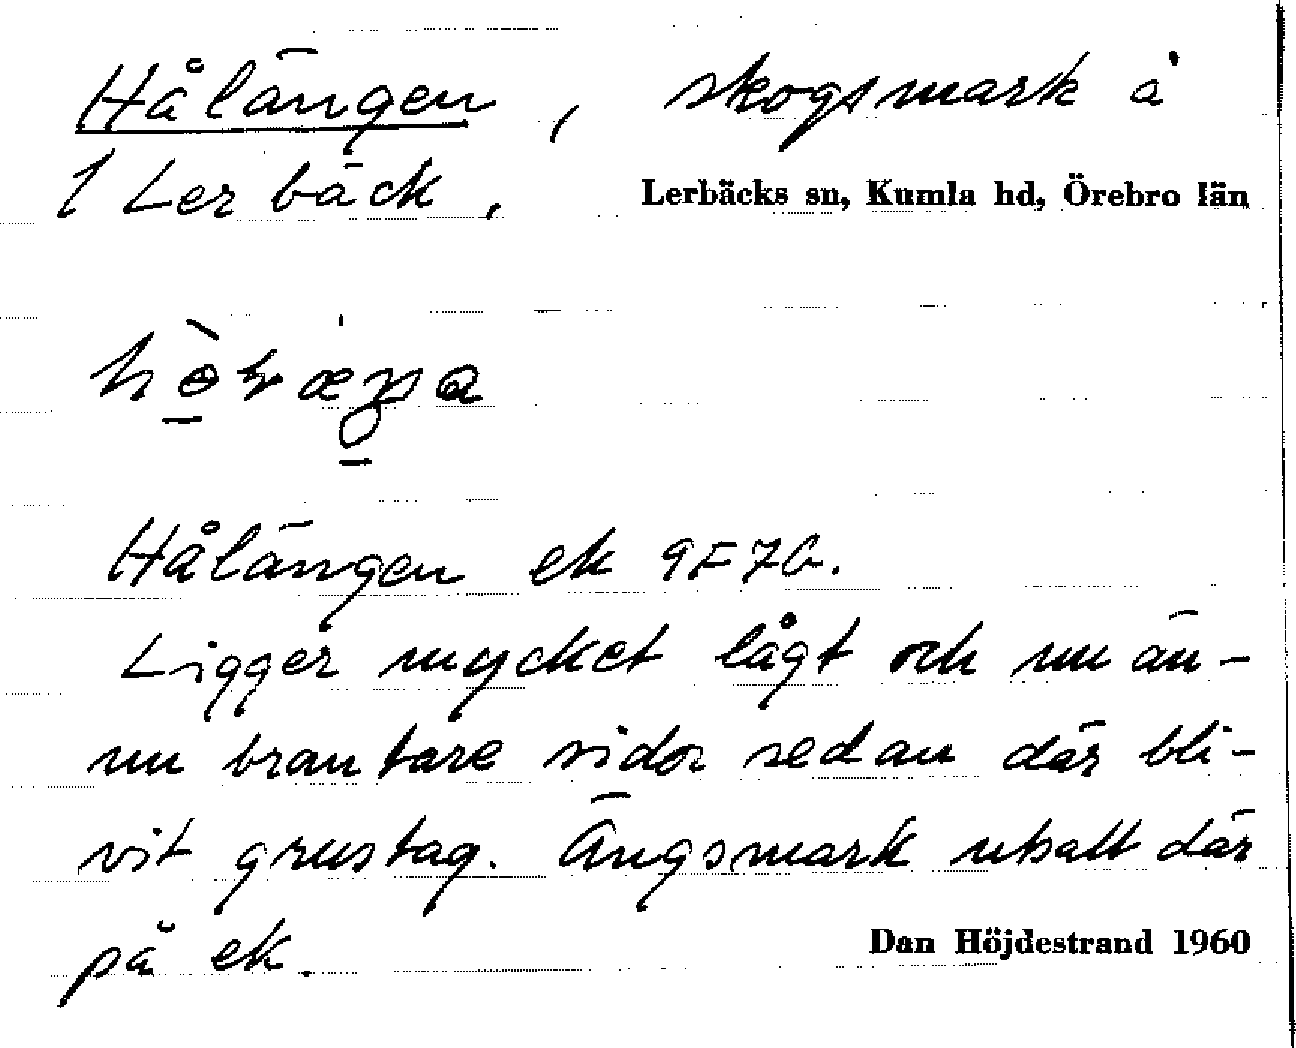 Hålängen, skogsmark å
1 Lerbäck, Lerbäcks sn, Kumla hd, Örebro län
Hålängen ek 9F7G.
Ligger mycket lågt och nu än-
nu brantare sidor sedan där bli-
vit grustag. Ängsmark utsatt där
på ek.
Dan Höjdestrand 1960